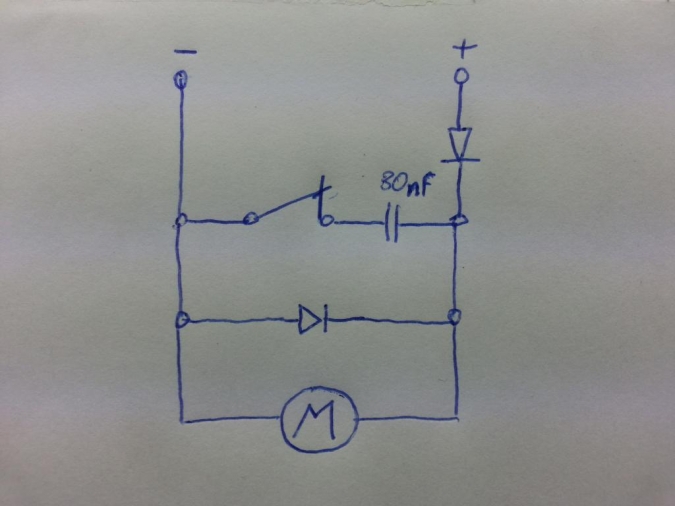 - +
80nF
M